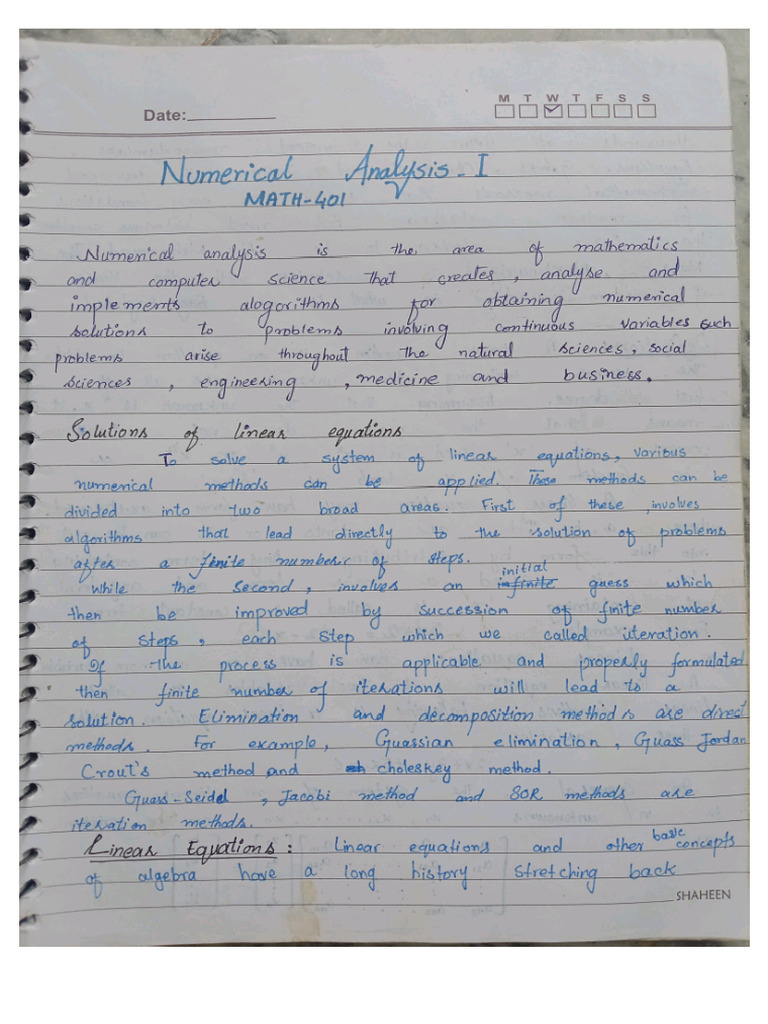 M T W T F S S
Date:
Numerical Analysis - I
MATH-401
Numerical analysis is the area of mathematics
and computer science that creates, analyse and
implements alogorithms for obtaining numerical
solutions to problems involving continuous variables such
problems arise throughout the natural sciences, social
sciences, engineering, medicine and business.
Solutions of linear equations
To solve a system of linear equations, various
numerical methods can be applied. These methods can be
divided into two broad areas. First of these, involves
algorithms that lead directly to the solution of problems
after a finite number of steps.
While the second, involves an infinite initial guess which
then be improved by succession of finite number
of steps, each step which we called iteration.
If the process is applicable and properly formulated
then finite number of iterations will lead to a
solution. Elimination and decomposition methods are direct
methods. For example, Guassian elimination, Guass Jordan
Crout's method and choleskey method.
Guass-Seidel, Jacobi method and SOR methods are
iteration methods.
Linear Equations: Linear equations and other basic concepts
of algebra have a long history stretching back
SHAHEEN